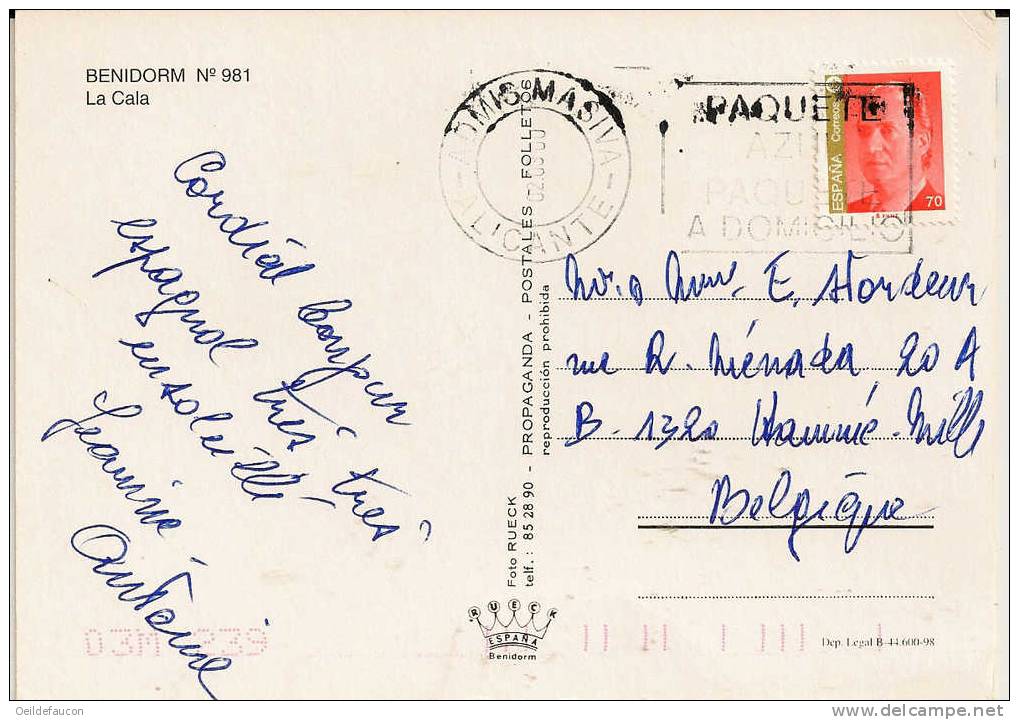 BENIDORM Nº 981
La Cala
Cordial bonjour
espagnol très très
ensoleillé
Jeannine
Antoine
ADMIS-MASIVA-
ALICANTE-
02.03.00
PAQUETE
AZUL
PAQUETE
A DOMICILIO
ESPAÑA Correos
70
Mr. & Mme. E. Stordeur
rue R. Ménada, 20 A
B. 1320 Hamme-Mille
Belgique
Foto RUECK - PROPAGANDA - POSTALES FOLLETOS
telf.: 85 28 90
reproducción prohibida
RUECK
ESPAÑA
Benidorm
03M 239
Dep. Legal B-44.600-98
Oeildefaucon